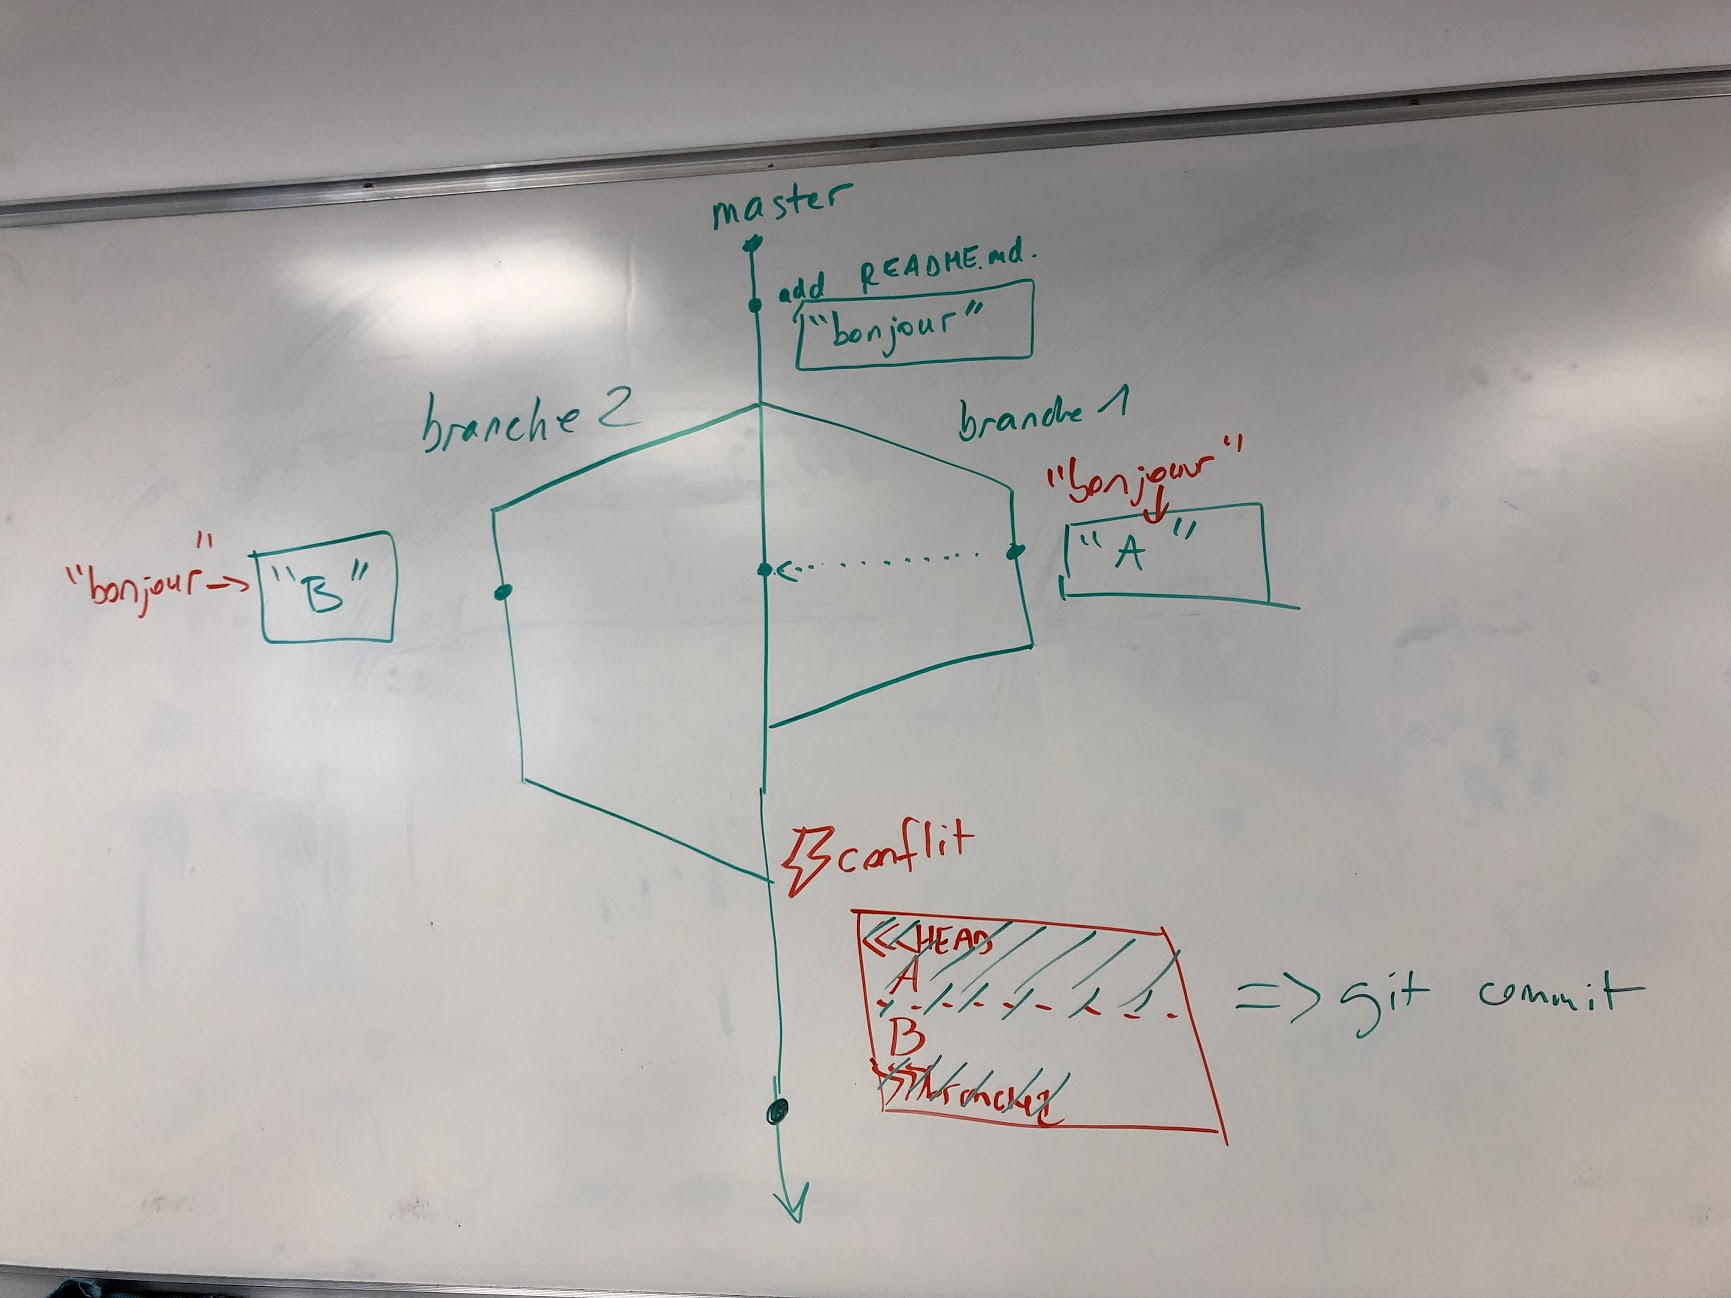 master
add README.md.
"bonjour"
branche 2
branche 1
"bonjour"
"A"
"bonjour"
"B"
conflit
<<HEAD
A
- - - - - - - -
B
>>branche2
=> git commit